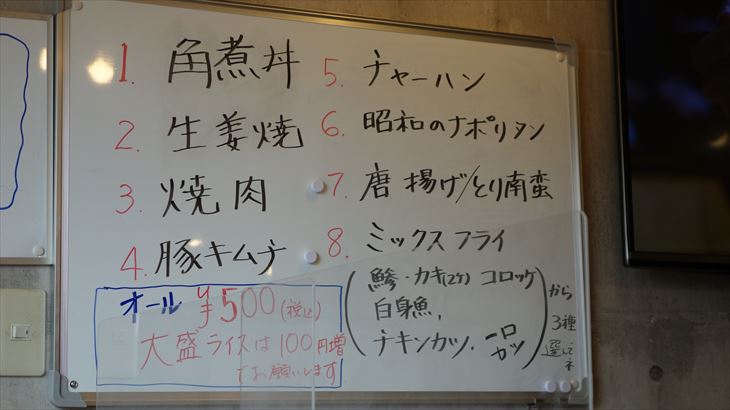 1. 角煮丼
2. 生姜焼
3. 焼肉
4. 豚キムチ
5. チャーハン
6. 昭和のナポリタン
7. 唐揚げ/とり南蛮
8. ミックスフライ
(鯵・カキ(2ケ) コロッケ
白身魚,
チキンカツ. 一口カツ)
から
3種
選んでネ
オール ¥500(税込)
大盛ライスは100円増
でお願いします